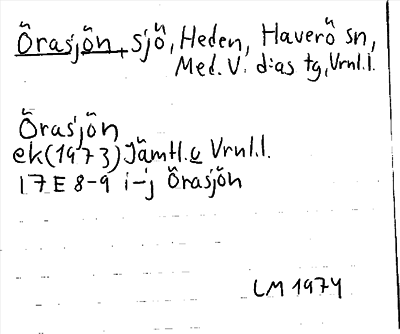 Örasjön, sjö, Heden, Haverö sn,
Med. V. d:as tg, Vrnl.l.
Örasjön
ek(1973) Jämtl. o Vrnl.l.
17E 8-9 i-j Örasjön
LM 1974